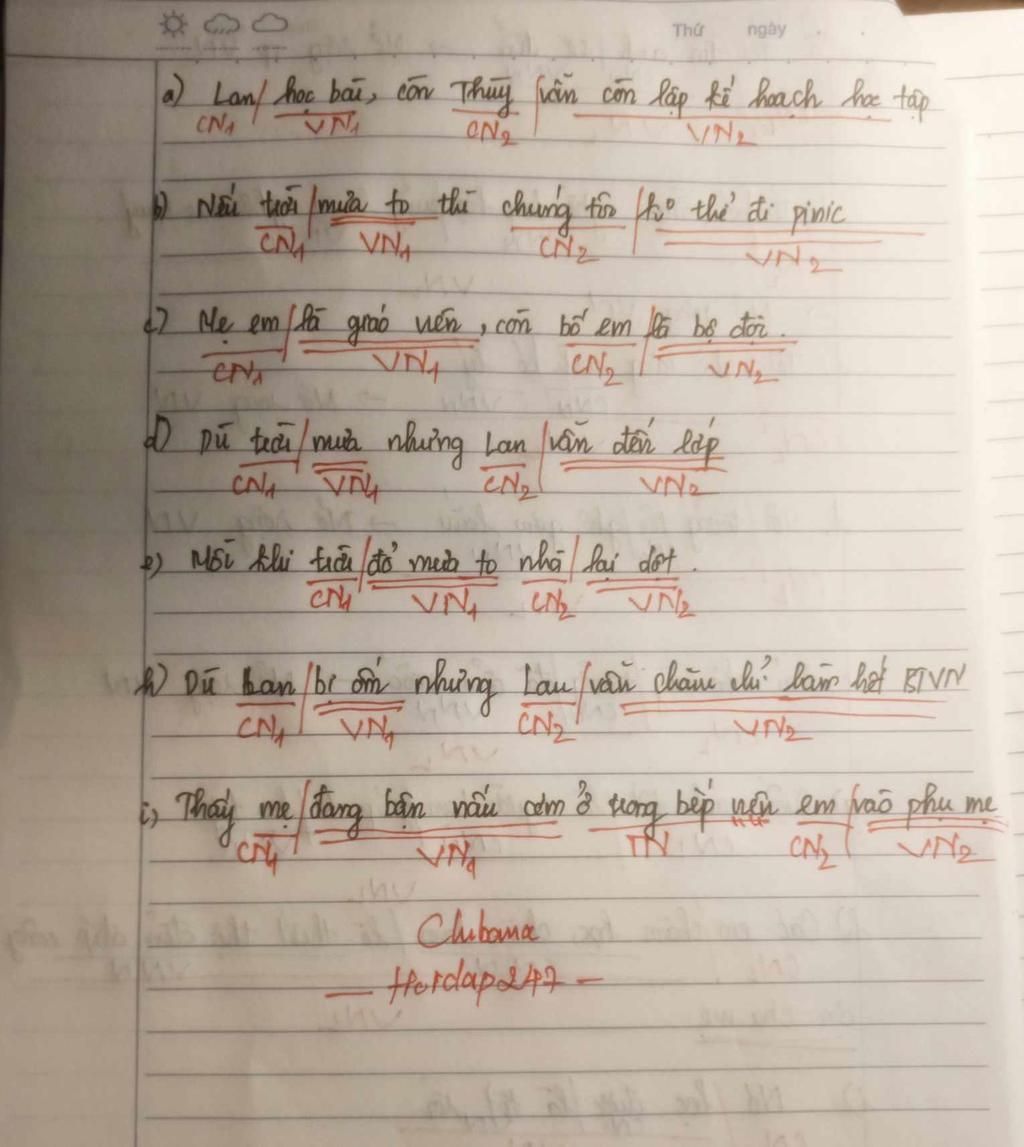 Thứ ngày
a) Lan / học bài, còn Thùy / vẫn còn lập kế hoạch học tập
CN1 VN1 CN2 VN2
b) Nếu trời / mưa to thì chúng tôi / ko thể đi pinic
CN1 VN1 CN2 VN2
c) Mẹ em / là giáo viên, còn bố em / là bộ đội.
CN1 VN1 CN2 VN2
d) Dù trời / mưa nhưng Lan / vẫn đến lớp
CN1 VN1 CN2 VN2
e) Mỗi khi trời / đổ mưa to nhà / lại dột.
CN1 VN1 CN2 VN2
h) Dù Lan / bị ốm nhưng Lan / vẫn chăm chỉ làm hết BTVN
CN1 VN1 CN2 VN2
i) Thấy mẹ / đang bận nấu cơm ở trong bếp nên em / vào phụ mẹ
CN1 VN1 TN CN2 VN2
— Hoidap247 —